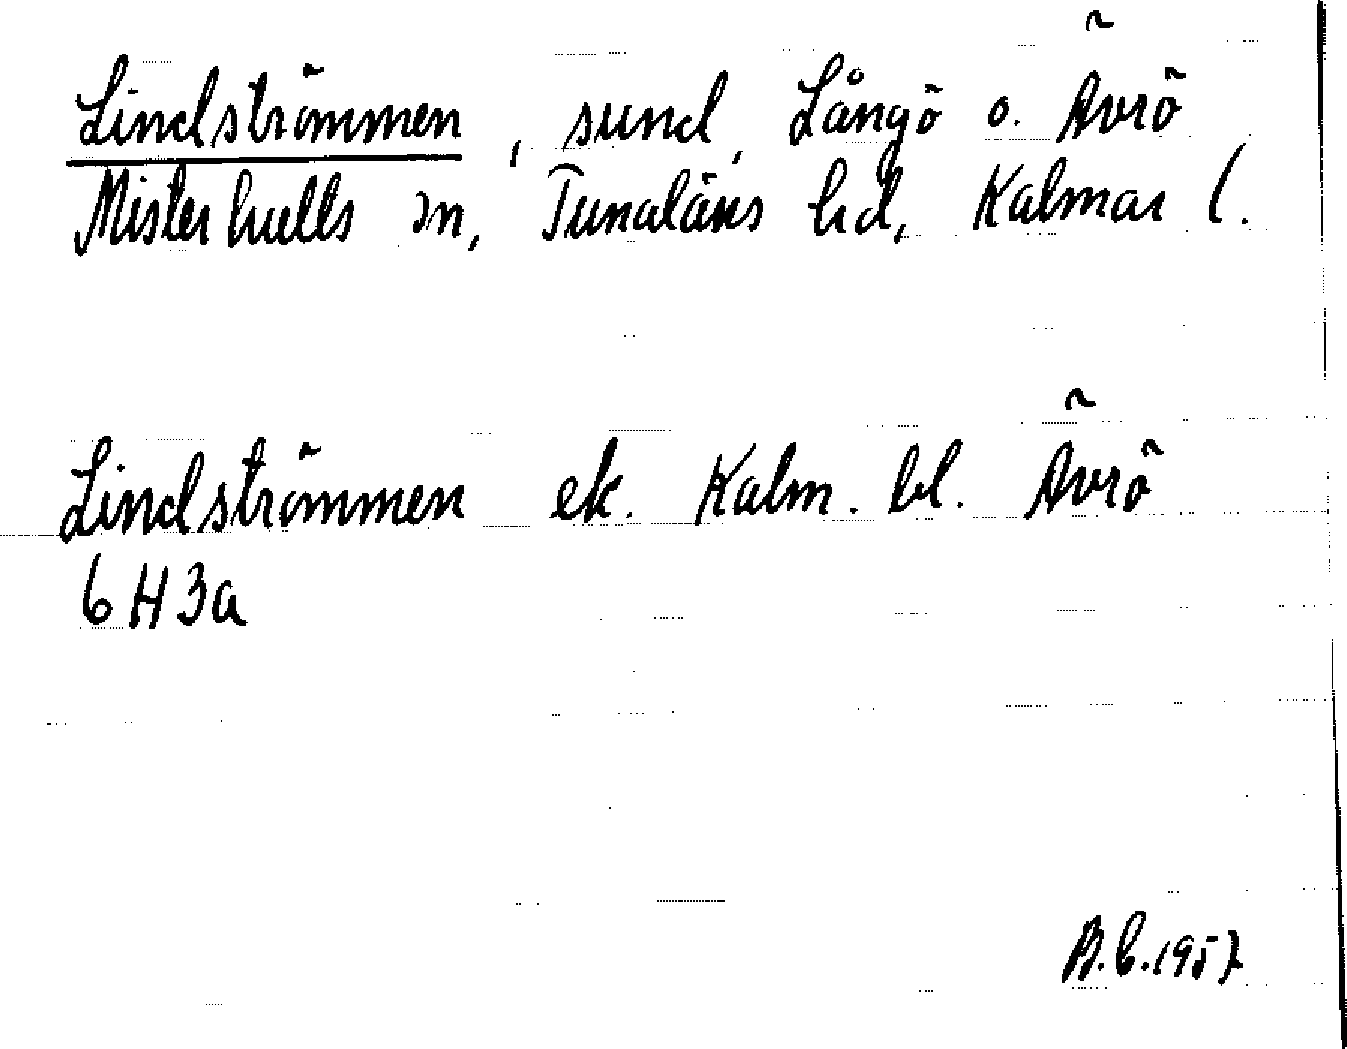 Lindströmmen, sund, Långö o. Ävrö
Misterhults sn, Tunaläns hd, Kalmar l.
Lindströmmen ek. Kalm. bl. Ävrö
6H3a
B.E.1957